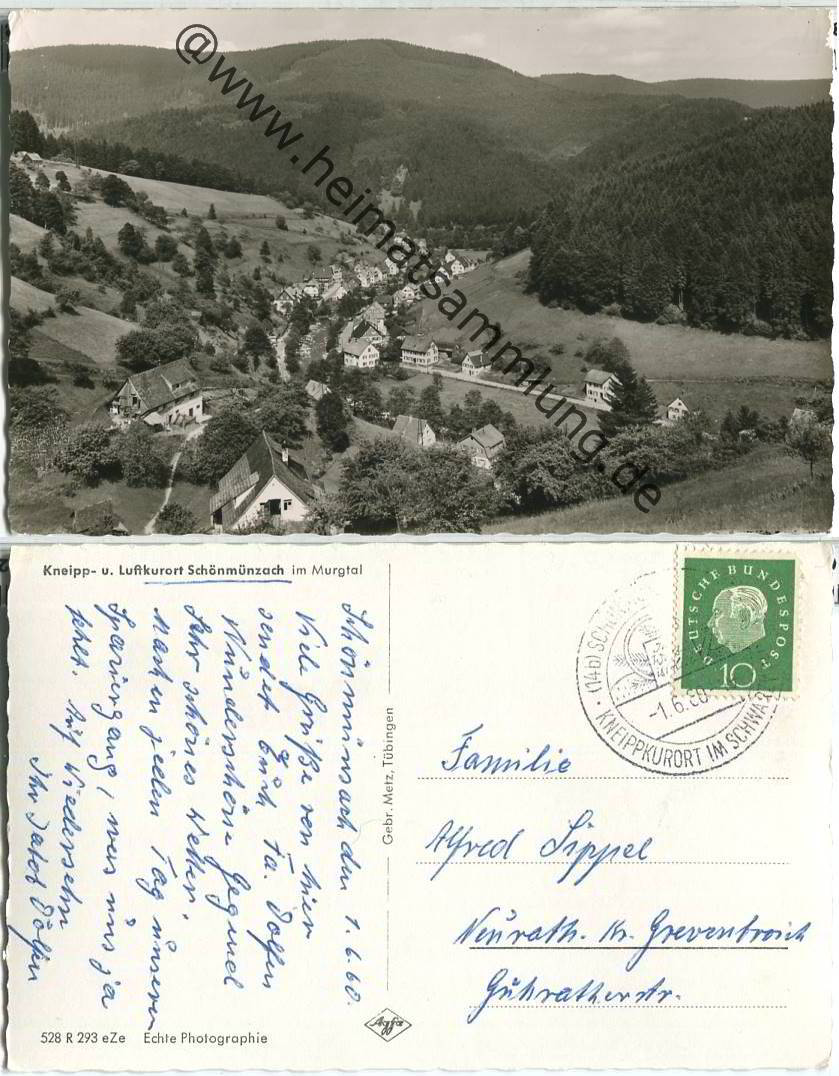 @www.heimatsammlung.de
Kneipp- u. Luftkurort Schönmünzach im Murgtal
Schönmünzach den 1.6.60.
Viele Grüße von hier
sendet Euch Fa. Dolfen
Wunderschöne Gegend
Sehr schönes Wetter.
Machen jeden Tag unseren
Spaziergang, was uns ja
fehlt. Auf Wiedersehn
Ihr Jakob Dolfen
Gebr. Metz, Tübingen
DEUTSCHE BUNDESPOST
10
(14b) SCH
-1.6.60
KNEIPPKURORT IM SCHWA
Familie
Alfred Sippel
Neurath. Kr. Grevenbroich
Gühratherstr.
528 R 293 eZe Echte Photographie
Agfa